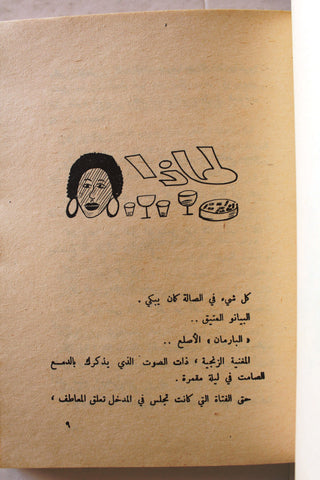 لماذا
كل شيء في الصالة كان يبكي .
البيانو العتيق ..
« البارمان » الأصلع ..
المغنية الزنجية ، ذات الصوت الذي يذكرك بالدمع
الصامت في ليلة مقمرة .
حتى الفتاة التي كانت تجلس في المدخل تعلق المعاطف ،
٩